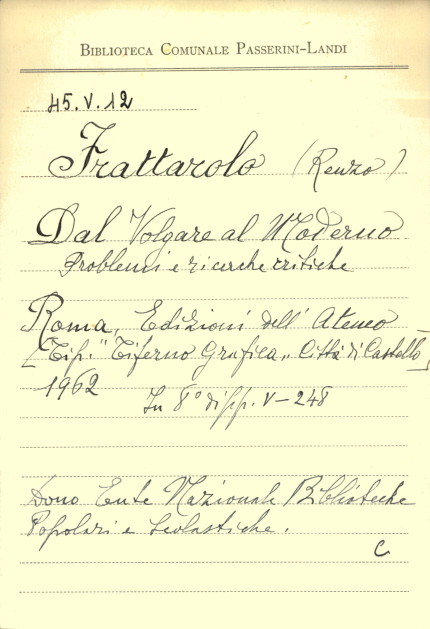 BIBLIOTECA COMUNALE PASSERINI-LANDI
45.V.12
Frattarolo (Renzo)
Dal Volgare al Moderno
Problemi e ricerche critiche
Roma, Edizioni dell' Ateneo
[Tip. "Tiferno Grafica" Città di Castello]
1962
In 8° di pp. V-248
Dono Ente Nazionale Biblioteche
Popolari e Scolastiche.
C